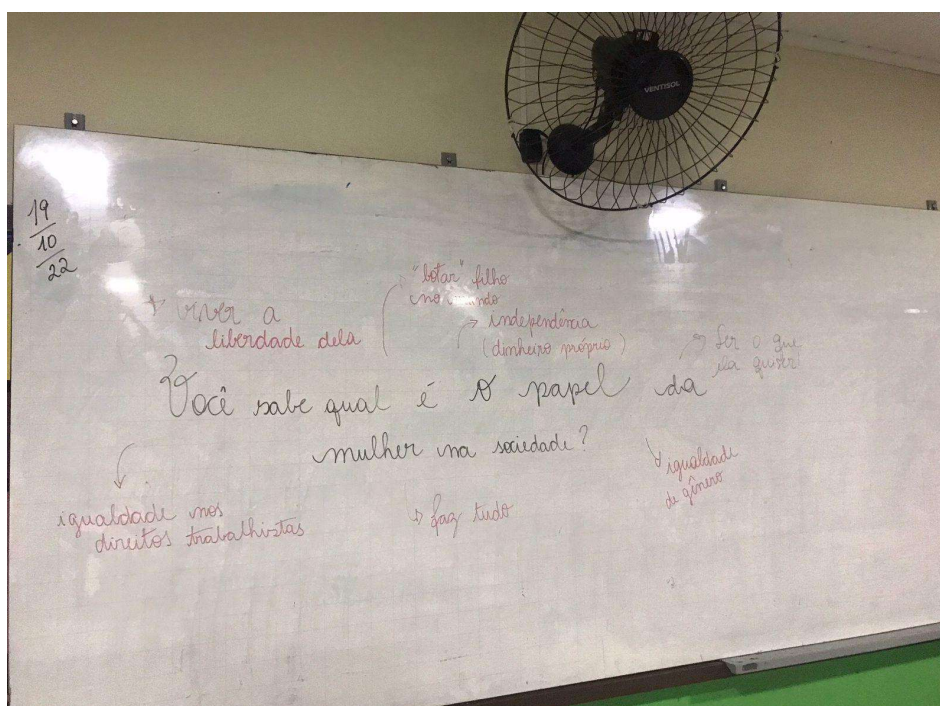 VENTISOL
19
10
22
"botar" filho
no mundo
viver a
liberdade dela
independência
(dinheiro próprio)
Ser o que
ela quiser
Você sabe qual é o papel da
mulher na sociedade?
igualdade nos
direitos trabalhistas
faz tudo
igualdade
de gênero